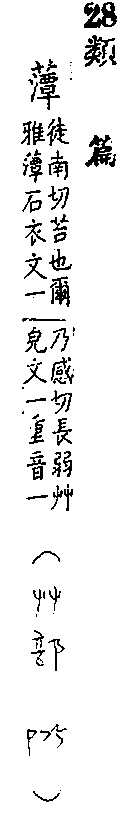 28 類篇
藫
徒南切苔也爾
雅藫石衣文一
乃感切長弱艸
皃文一重音一
(艸部 )